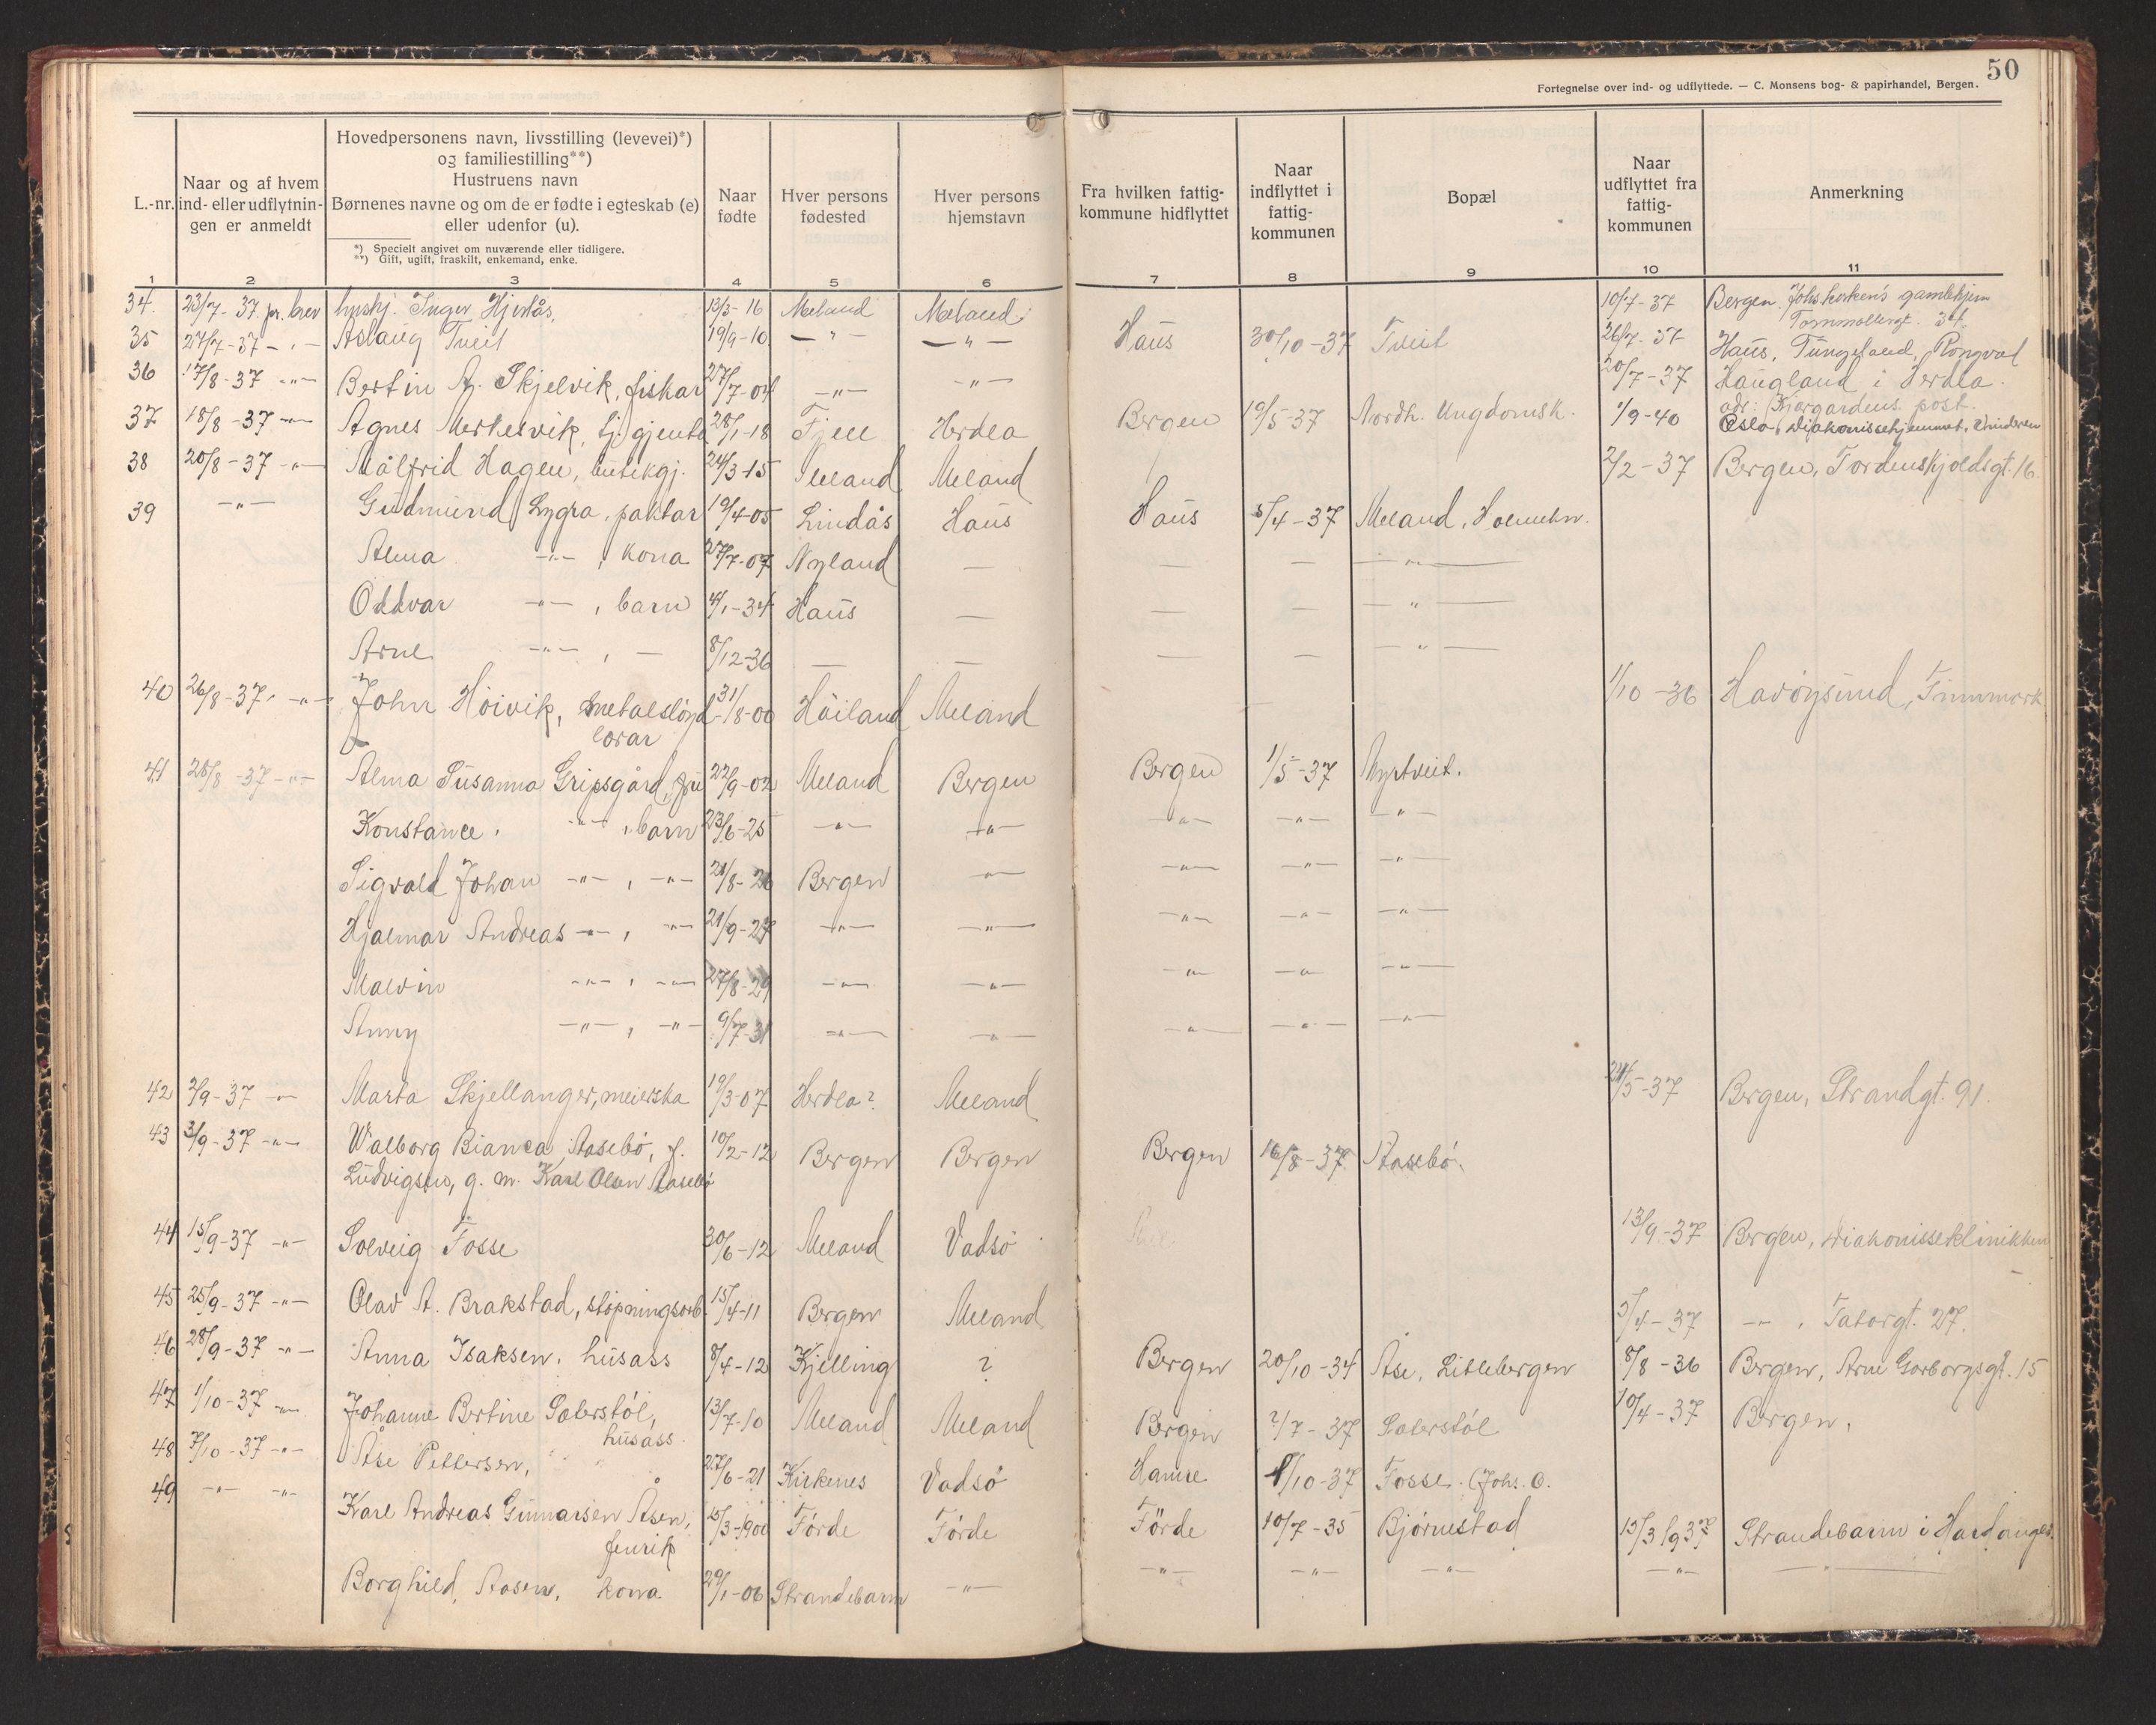 50
Fortegnelse over ind- og udflyttede. — C. Monsens bog- & papirhandel, Bergen.
L.-nr.
Naar og af hvem ind- eller udflytnin- gen er anmeldt
Hovedpersonens navn, livsstilling (levevei)*)
og familiestilling**)
Hustruens navn
Børnenes navne og om de er fødte i egteskab (e)
eller udenfor (u).
*) Specielt angivet om nuværende eller tidligere.
**) Gift, ugift, fraskilt, enkemand, enke.
Naar fødte
Hver persons fødested
Hver persons hjemstavn
Fra hvilken fattig- kommune hidflyttet
Naar indflyttet i fattig- kommunen
Bopæl
Naar udflyttet fra fattig- kommunen
Anmerkning
1 2 3 4 5 6 7 8 9 10 11
34. 23/7-37. pr. brev hushj. Inger Hjertås, 13/3-16 Meland Meland 10/7-37 Bergen. Johs gamlehjem
35 27/7-37 -"- Aslaug Tveit 19/9-10 -"- -"- Haus 30/10-37 Tveit 26/7-37 Haus, Tungeland,
36 17/8-37 -"- Bertin A. Skjelvik, fiskar 27/7-04 -"- -"- 20/7-37 Haugland i Herdla.
adr: Kjørgardens post.
37 18/8-37 -"- Agnes Merkesvik, tj.gjenta 28/1-18 Fjell Herdla Bergen 19/5-37 Nordh. Ungdomsk. 1/9-40 Oslo, Diakonissehjemmet, Vinderen
38 20/8-37 -"- Målfrid Hagen, butikgj. 24/3-15 Meland Meland 2/2-37 Bergen, Tordenskjoldsgt. 16
39 -"- Gudmund Lygra, paktar 19/4-05 Lindås Haus Haus 5/4-37 Meland, Holmehn.
Alma -"-, kona 27/7-07 Nyland — — — -"-
Oddvar -"-, barn 4/1-34 Haus — — — -"-
Arne -"-, — 8/12-36 — — — — -"-
40 26/8-37, -"- John Höivik, metalsløyd- 31/8-00 Håiland Meland 1/10-36 Havöysund, Finnmark
lærar
41 28/8-37 -"- Alma Susanna Gripsgård, fru 22/9-02 Meland Bergen Bergen 1/5-37 Myrtveit.
Konstance, -"-, barn 23/6-25 -"- -"- -"- -"- -"-
Sigvald Johan -"-, -"- 21/8-26 Bergen -"- -"- -"- -"-
Hjalmar Andreas -"-, -"- 21/9-27 -"- -"- -"- -"- -"-
Malvin -"-, -"- 27/8-29 -"- -"- -"- -"- -"-
Anny -"-, -"- 9/7-31 -"- -"- -"- -"- -"-
42 2/9-37 -"- Marta Skjellanger, meierska 19/3-07 Herdla? Meland 24/5-37 Bergen, Strandgt. 91.
43 3/9-37 -"- Walborg Bianca Aasebö, f. 10/2-12 Bergen Bergen Bergen 16/8-37 Aasebö.
Ludvigsen, g. m. Karl Olsen Aasebö
44 15/9-37 -"- Solveig Fosse 30/6-12 Meland Vadsö 13/9-37 Bergen, Diakonisseklinikken
45 25/9-37 -"- Olav A. Brakstad, støpningsarb. 15/4-11 Bergen Meland 5/4-37 -"-, Tartargt. 27.
46 28/9-37 -"- Anna Isaksen, husass 8/4-12 Kjelling ? Bergen 20/10-34 Åse, Litlebergen 8/8-36 Bergen, Arne Garborgsgt. 15
47 1/10-37 -"- Johanne Bertine Sæterstöl, 13/7-10 Meland Meland Bergen ?/7-37 Sæterstöl 10/4-37 Bergen,
husass.
48 7/10-37 -"- Åse Pettersen, 27/6-21 Kirkenes Vadsö Hamre 1/10-37 Fosse. (Johs. O.
49 -"- -"- Karl Andreas Gunnarsen Åsen, 15/3-1900 Förde Förde Förde 10/7-35 Björnestad 15/3 1937 Strandebarm i Hardanger.
fenrik
Borghild Aasen, kona. 29/1-06 Strandebarm -"- -"- -"- -"- -"- -"-